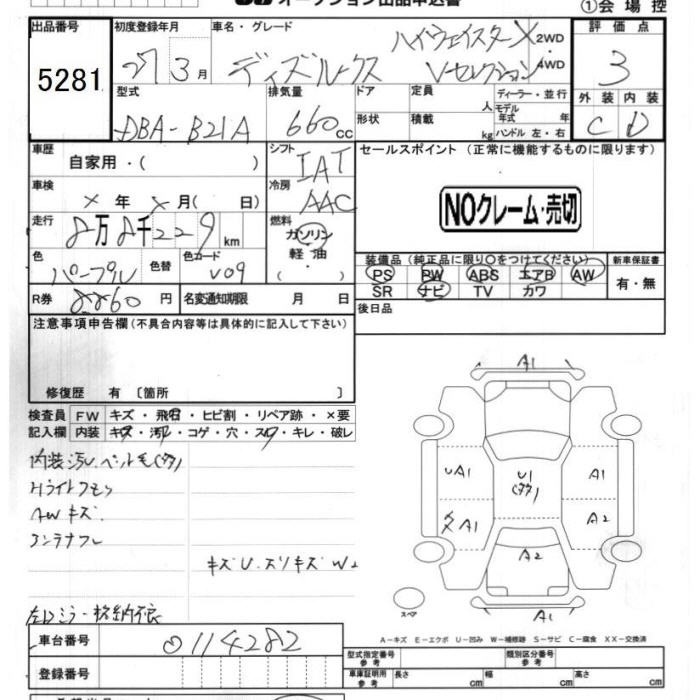 オークション出品申込書
①会場控
出品番号 5281
初度登録年月 27 3月
車名・グレード ディズルークス ハイウェイスターX Vセレクション
2WD 4WD
評価点 3
外装 C 内装 D
型式 DBA-B21A
排気量 660 cc
ドア 形状
定員 人
積載 kg
ディーラー・並行
モデル年式 年
ハンドル 左・右
車歴 自家用・( )
シフト IAT
冷房 AAC
セールスポイント (正常に機能するものに限ります)
NOクレーム・売切
車検 × 年 × 月( 日)
走行 8万8千229 km
燃料 ガソリン 軽油 ( )
色 パープル 色替 色コード V09
装備品 (純正品に限り○をつけてください)
PS PW ABS エアB AW
SR ナビ TV カワ
新車保証書 有・無
R券 8860 円 名変通知期限 月 日
後日品
注意事項申告欄 (不具合内容等は具体的に記入して下さい)
修復歴 有 〔箇所 〕
検査員記入欄
FW キズ・飛石・ヒビ割・リペア跡・×要
内装 キズ・汚れ・コゲ・穴・スレ・キレ・破レ
内装汚レ・ペット毛(タタ)
Hライトクモリ
AWキズ
コンテナフレ
キズU.スリキズW2
左Dミラー格納不良
A1
UA1 U1 (タタ) A1
メA1 A2
A2
A1
スペア
A－キズ E－エクボ U－凹み W－補修跡 S－サビ C－腐食 XX－交換済
車台番号 0114282
登録番号
型式指定番号 参考
類別区分番号 参考
車庫証明用 参考 長さ cm 幅 cm 高さ cm